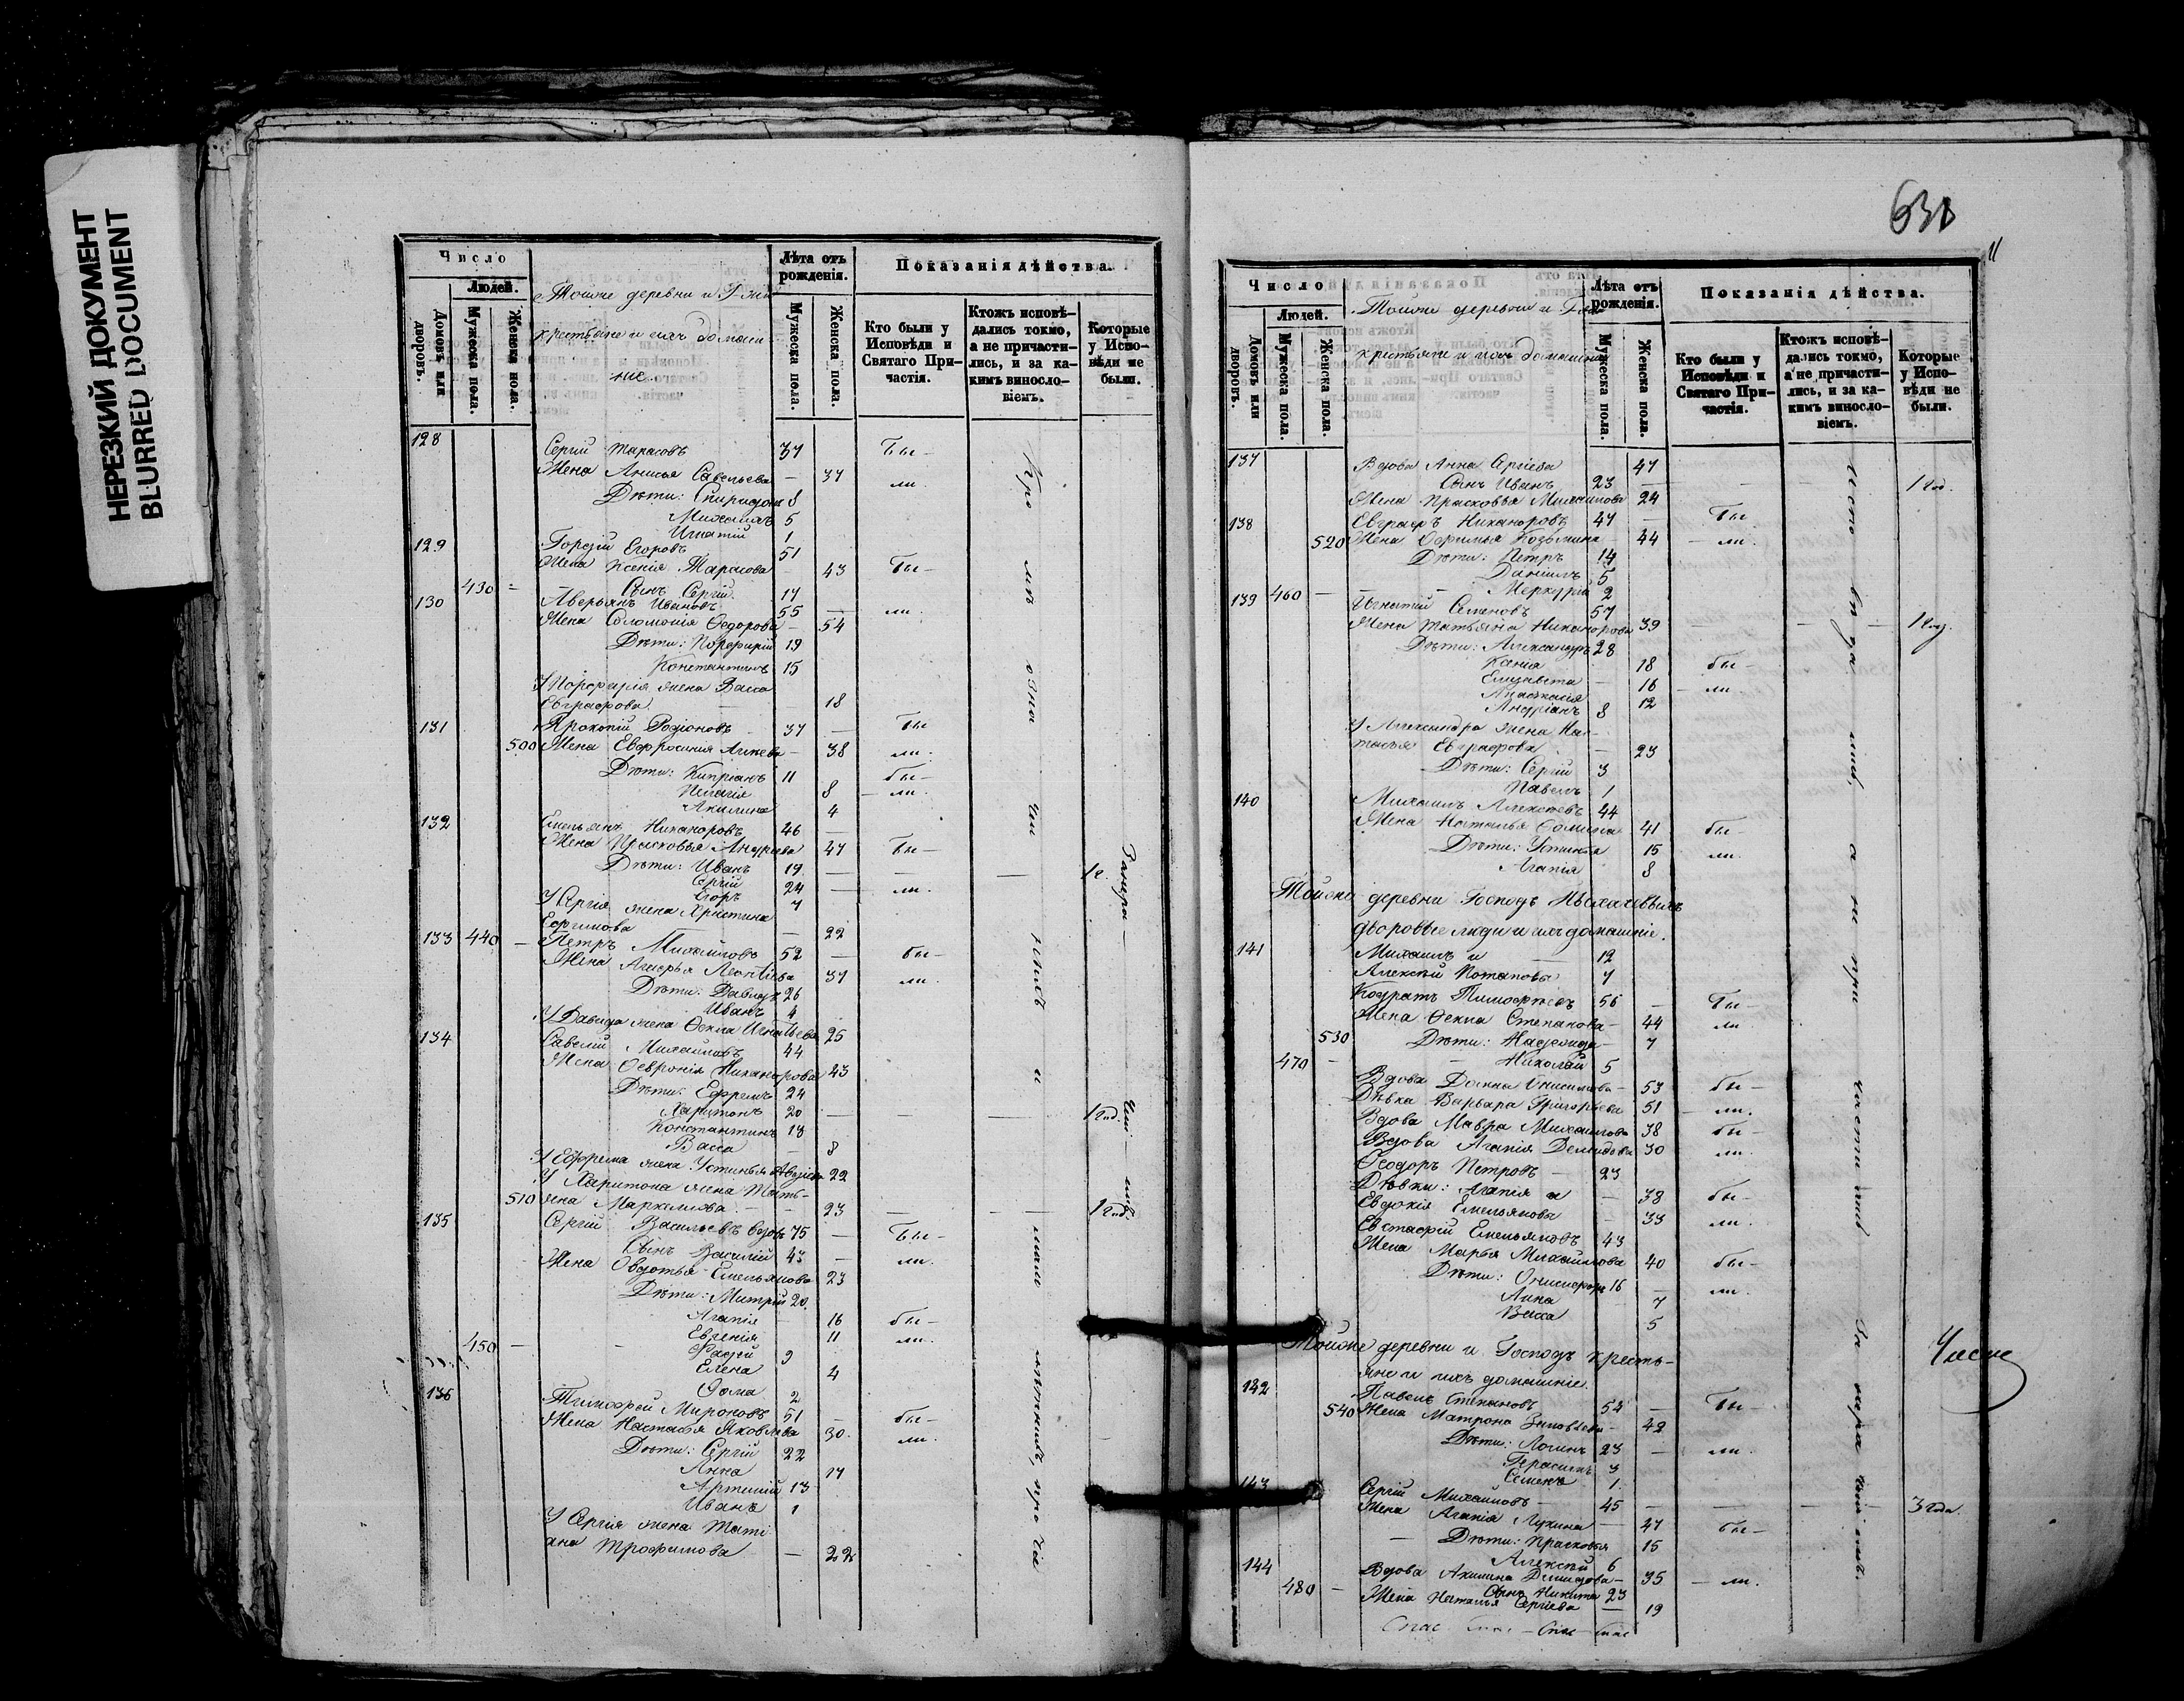 НЕРЕЗКИЙ ДОКУМЕНТ
BLURRED DOCUMENT
Число
Людей.
Домовъ или дворовъ.
Мужеска пола.
Женска пола.
Тойже деревни и
крестьяне и ихъ домаш
ніе.
Лѣта отъ рожденія.
Мужеска пола.
Женска пола.
Показанія дѣйства.
Кто были у Исповѣди и Святаго При-частія.
Ктожъ исповѣ-дались токмо, а не причасти-лись, и за ка-кимъ винословіемъ.
Которые у Испо-вѣди не были.
128 Сергій Тарасовъ 37 Бы-
Жена Анисья Савельева - 37 ли.
Дѣти: Спиридонъ 8
Михаилъ 5
Игнатій 1
129 Гордій Егоровъ 51
Жена Ксенія Тарасова - 43 Бы-
430 - Сынъ Сергій 17
130 Аверьянъ Ивановъ 55 - ли.
Жена Соломонія Ѳедорова - 54
Дѣти: Порфирій 19
Константинъ 15
У Порфирія жена Васса
Евграфова 18
131 Прокопій Родіоновъ 37 - Бы
500 Жена Евфросинія - 38 ли.
Дѣти: Кипріанъ 11 бы-
Пелагія 8 - ли.
Акилина 4
132 Емельянъ Никаноровъ 46 -
Жена Прасковья Андреева 47 Бы-
Дѣти: Иванъ 19 - - - 1 г.
Сергій 24 - ли.
Егоръ 7
У Сергія жена Христина
- 22
133 440 - Петръ Михайловъ 52 - бы-
Жена Агафья Леонтіева 37 ли.
Дѣти: Давидъ 26
Иванъ 4
У Давида жена Ѳекла Игнатьева 25
134 Савелій Михайловъ 44
Жена Ѳевронія Никанорова 43
Дѣти: Ефремъ 24
Харитонъ 20 - - - 1 год.
Константинъ 18
Васса - 8
У Ефрема жена Устинья 22
У Харитона жена Тать-
510 яна Маркелова - - 23 - - 1 год.
135 Сергій Васильевъ вдовъ 75 - Бы-
Сынъ Василій 43 - ли.
Жена Овдотья Емельянова 23
Дѣти: Митрій 20
Агапія - 16 бы-
Евгенія 11 ли.
450 - - 9
Елена 4
Ѳома 2
136 Тимофей Мироновъ 51 - бы-
Жена Настасья Яковлева 30 ли.
Дѣти: Сергій 22
Анна 17
Артемій 13
Иванъ 1
У Сергія жена Тати
яна Трофимова - 22
631
11
Число
Людей.
Домовъ или дворовъ.
Мужеска пола.
Женска пола.
Тойже деревни и
крестьяне и ихъ домашніе
Лѣта отъ рожденія.
Мужеска пола.
Женска пола.
Показанія дѣйства.
Кто были у Исповѣди и Святаго При-частія.
Ктожъ исповѣ-дались токмо, а не причасти-лись, и за ка-кимъ винословіемъ.
Которые у Испо-вѣди не были.
137 Вдова Анна Сергіева 47
Сынъ Иванъ 23 - - - 1 год.
Жена Прасковья Михаилова 24
138 Евграфъ Никаноровъ 47 - Бы
520 Жена Козьмина 44 - ли.
Дѣти: Петръ 14
Даніилъ 5
460 - - Меркурій 2
139 Игнатій Семеновъ 57
Жена Татьяна Никанорова 39 - - - 1 год.
Дѣти: Александръ 28
Ксенія 18 бы-
Елизавета - 16 - ли.
Анастасія 12
Андріанъ 8
У Александра жена Нас-
тасья Евграфова - 23
Дѣти: Сергій 3
Павелъ 1
140 Михаилъ Алексѣевъ 44
Жена Наталья Ѳомина 41 бы-
Дѣти: Устинья 15 ли.
Агапія 8
Тойже деревни Господъ
дворовые люди и ихъ домашніе.
141 Михаилъ и 12
Алексѣй Потаповы 7
Кодратъ Тимофѣевъ 56 - Бы-
Жена Ѳекла Степанова - 44 ли
530 Дѣти: Надежда - 7
470 - - Николай 5
Вдова Домна Онисимова - 53 бы-
Дѣвка Варвара Григорьева 51 - ли.
Вдова Мавра Михаилова 38 бы-
Вдова Агапія Демидова 30 ли.
Ѳеодоръ Петровъ - 23
Дѣвки: Агапія и - 38 бы-
Евдокія Емельяновы - 33 ли.
Евстафій Емельяновъ 43
Жена Марья Михайлова 40 бы-
Дѣти: Онисифоръ 16 - ли.
Анна 7
Васса 5
Тойже деревни и Господъ кресть-
яне и ихъ домашніе.
142 Павелъ Степановъ 54 - Бы-
540 Жена Матрона Зиновьева - 42
Дѣти: Логинъ 23 - ли.
Герасимъ 3
Семенъ 1
143 Сергій Михайловъ - 45 - - - 3 года
Жена Агапія Лукина - 47 бы-
- Дѣти: Прасковья 15
Алексѣй 6
144 Вдова Акилина Демидова - 35 - ли.
480 - Сынъ Никита 23
Жена Наталья Сергіева - 19